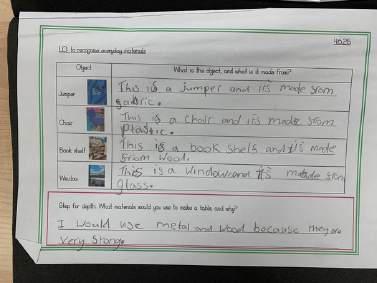 4B25
LO: to recognise everyday materials
Object
What is the object, and what is it made from?
Jumper
This is a jumper and it's made srom
sabric.
Chair
This is a chair and it's made srom
plastic.
Book shelf
This is a book shels and it's made
srom wood.
Window
This is a window and it's made srom
glass.
Step for depth: What materials would you use to make a table and why?
I would use metal and wood because they are
very strong.